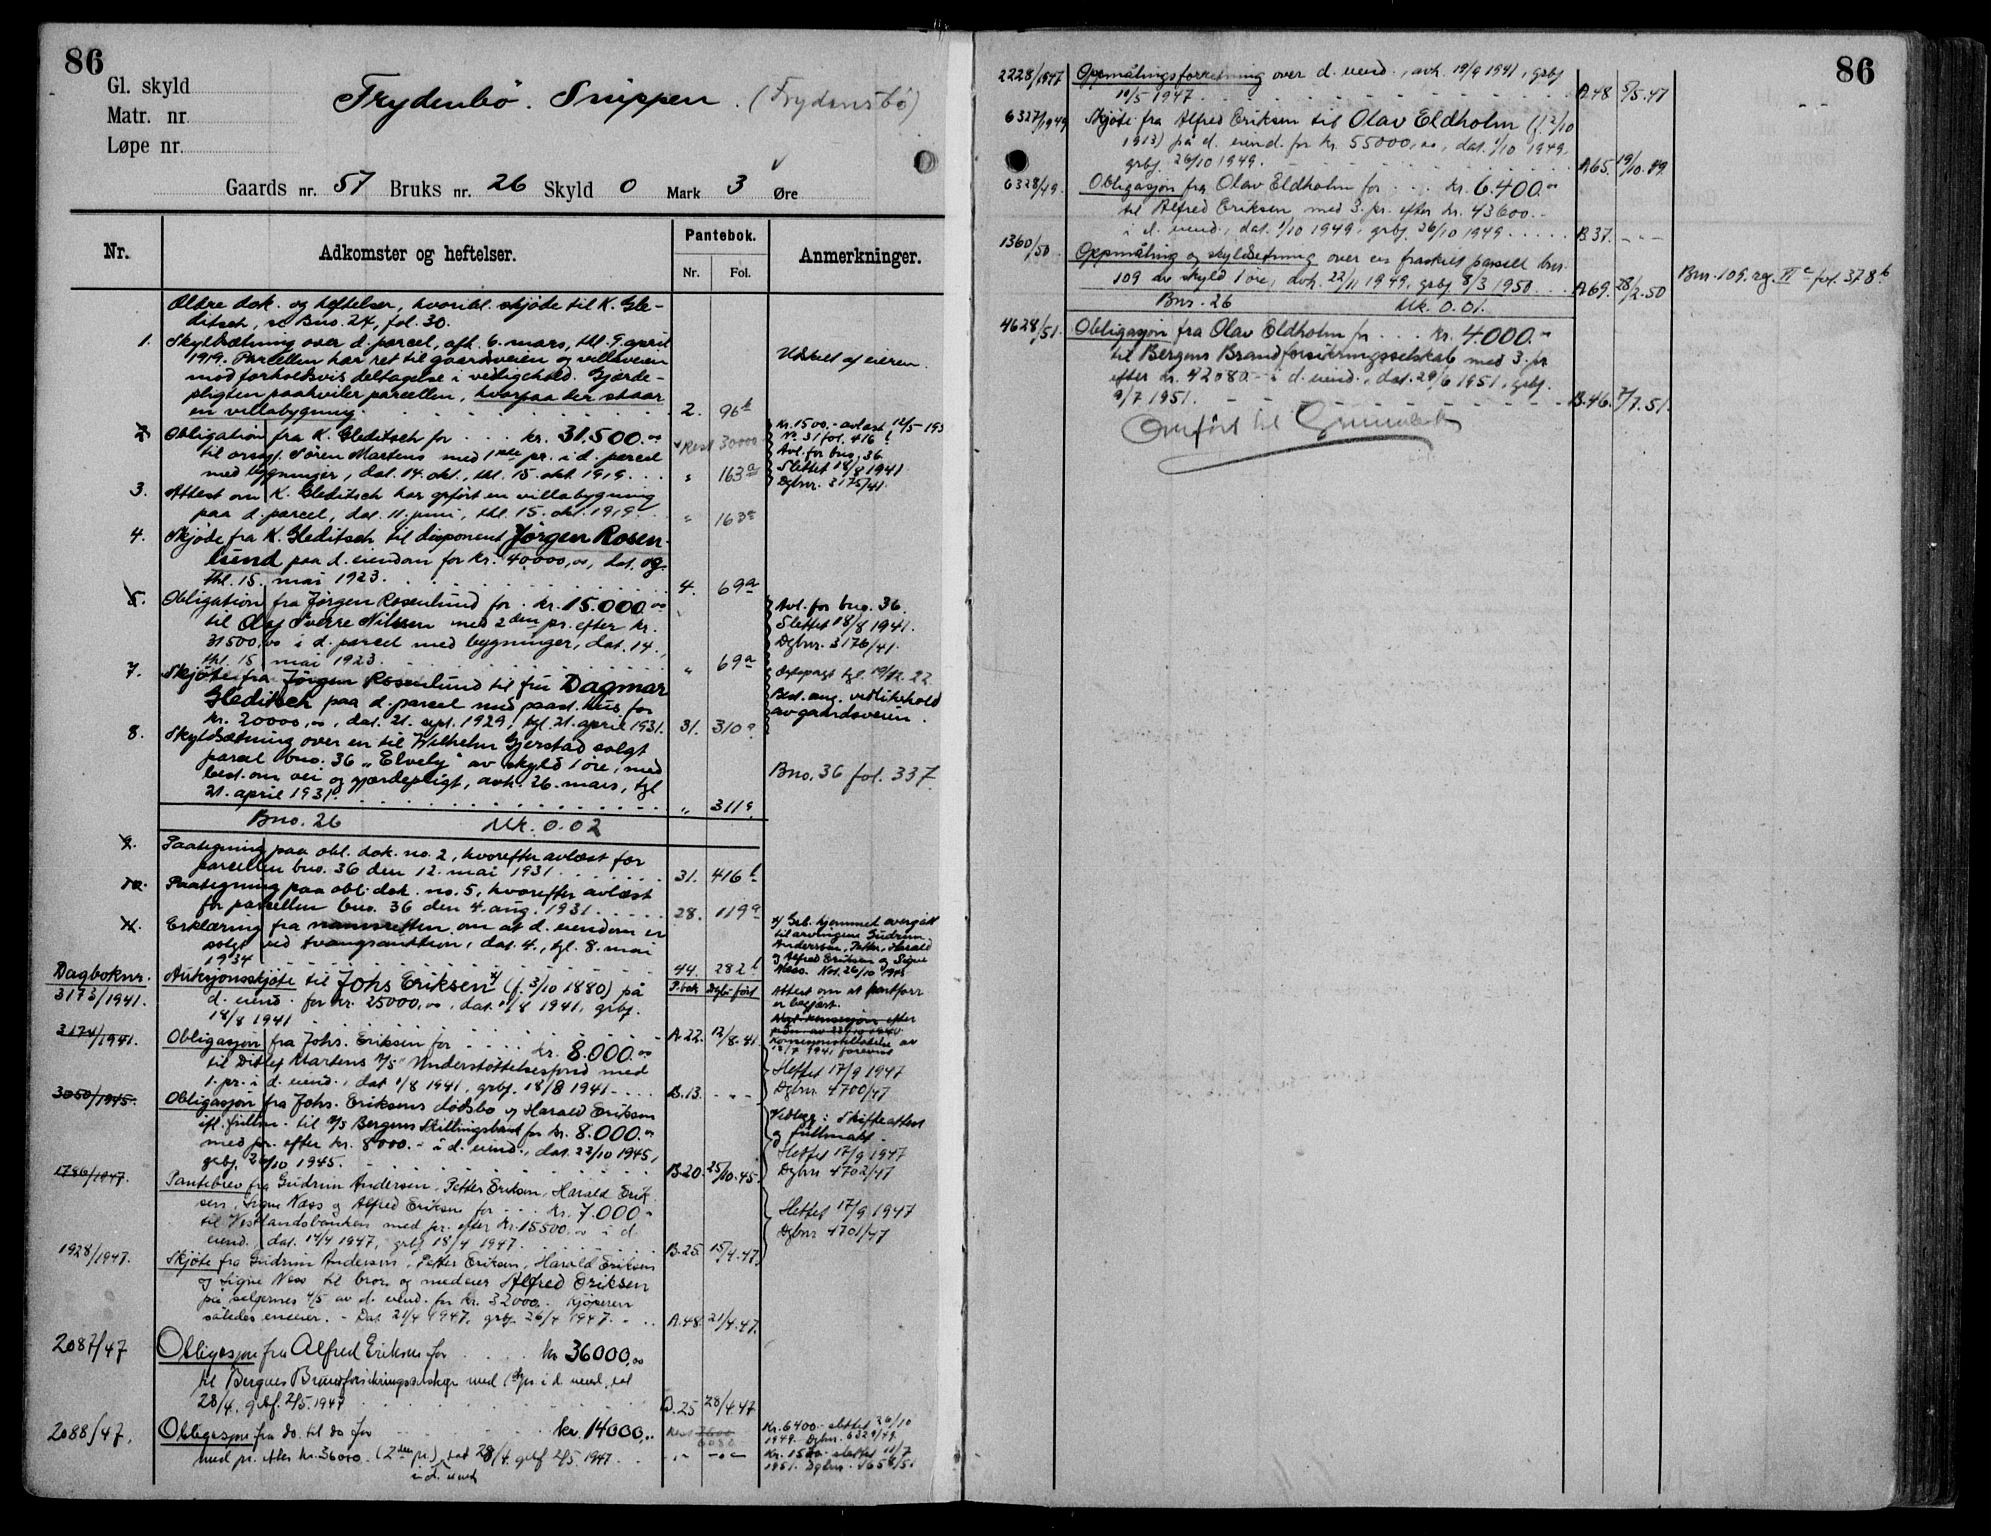 86
Gl. skyld
Matr. nr.
Løpe nr.
Frydenbö. Snippen. (Frydensbö)
Gaards nr. 57 Bruks nr. 26 Skyld 0 Mark 3 Øre
Nr.
Adkomster og heftelser.
Pantebok.
Nr. Fol.
Anmerkninger.
Ældre dok. og heftelser, hvoribl. skjöde til K. Gle-
ditsch, se Bno. 24, fol. 30.
1. Skyldsætning over d. parcel, afh. 6. mars, thl. 9. april
1919. Parcellen har ret til gaardsveien og villaveien
mod forholdsvis deltagelse i vedligehold. Gjærde-
pligten paahviler parcellen, hvorpaa der staar
en villabygning. 2. 96b
Utskilt af eieren.
2. Obligation fra K. Gleditsch for kr. 31.500.00
til Søren Martens med 1ste pr. i d. parcel
med bygninger, dat. 14. okt., thl. 15. okt. 1919. " 163a
Rest 30000
Kr. 1500,- avlæst 12/5-193
Nr. 31 fol. 416b
Avl. for bno. 36
Slettet 18/8 1941
Dgbnr. 3175/41.
3. Attest om K. Gleditsch har opført en villabygning
paa d. parcel, dat. 11. juni, thl. 15. okt. 1919. " 163a
4. Skjöde fra K. Gleditsch til disponent Jörgen Rosen-
lund paa d. eiendom for kr. 40000,00, dat. og
thl. 15. mai 1923. 4. 69a
5. Obligation fra Jörgen Rosenlund for kr. 15.000.00
til Olaf Sverre Nilssen med 2den pr. efter kr.
31500,00 i d. parcel med bygninger, dat. 14.,
thl. 15. mai 1923. " 69a
Avl. for bno. 36.
Slettet 18/8 1941.
Dgbnr. 3176/41.
7. Skjöte fra Jörgen Rosenlund til fru Dagmar
Gleditsch paa d. parcel med paast. hus for
kr. 20000,00, dat. 21. sept. 1929, tgl. 21. april 1931. 31. 310a
tgl. 19/12. 22.
Best. ang. vedlikehold
av gaardsveien.
8. Skyldsætning over en til Wilhelm Gjerstad solgt
parcel bno. 36 "Elvely" av skyld 1 öre, med
best. om vei og gjærdepligt, avh. 26. mars, tgl
21. april 1931. " 311a
Bno. 36 fol. 337.
Bno. 26 Mk. 0.02
9. Paategning paa obl. dok. no. 2, hvorefter avlæst for
parcellen bno. 36 den 12. mai 1931. 31. 416b
10. Paategning paa obl. dok. no. 5, hvorefter avlæst
for parcellen bno. 36 den 4. aug. 1931. 28. 119a
11. Erklæring fra namsretten om at d. eiendom er
solgt ved tvangsauktion, dat. 4., tgl. 8. mai
1934 44. 282b
x) hjemmel overgått
til arvingene Gudrun
Andersson, Petter, Harald
og Alfred Eriksen og Signe
Næss. Not. 26/10 1945
Dagboknr.
P.bok Dgb. ført
3173/1941. Auksjonsskjöte til Johs Eriksen x) (f. 3/10 1880) på
d. eiend. for kr. 25000,00, dat. 11/8 1941, grbf.
18/8 1941 A.22. 12/8.41.
Attest om at
er begjært.
Konsesjonstillatelse av
18/7 1941 forevist
3174/1941. Obligasjon fra Johs. Eriksen for kr. 8.000.00
til Ditlef Martens A/S Understøttelsesfond med
1. pr. i d. eiend., dat. 1/8 1941, grbf. 18/8 1941. B.13. - " -
Slettet 17/9 1947
Dgbnr. 4700/47
3050/1945. Obligasjon fra Johs. Eriksens dödsbo og Harald Eriksen
ifl. fullm. til A/S Bergens Skillingsbank for kr. 8.000.00
med pr. efter kr. 8000.- i d. eiend., dat. 22/10 1945,
grbf. 26/10 1945. B.20. 25/10.45.
Vedlegg: Skifteattest
og fullmakt.
Slettet 17/9 1947
Dgbnr. 4702/47
1786/1947. Pantebrev fra Gudrun Andersen, Petter Eriksen, Harald Erik-
sen, Signe Næss og Alfred Eriksen for kr. 7.000.-
til Vestlandsbanken med pr. efter kr. 15500.00 i d.
eiend. dat. 14/4 1947, grbf. 18/4 1947. B.25. 15/4.47.
Slettet 17/9 1947
Dgbnr. 4701/47
1928/1947. Skjöte fra Gudrun Andersen, Petter Eriksen, Harald Eriksen
og Signe Ness til bror og medeier Alfred Eriksen
på selgernes 4/5 av d. eiend. for kr. 32000. Kjöperen
således eneeier. - Dat 21/4 1947, grbf. 26/4 1947. A.48. 21/4.47.
2087/47 Obligasjon fra Alfred Eriksen for kr 36000,00
til Bergens Brandforsikringsselskap med 1ste pr. i d. eiend., dat
28/4. grbf. 2/5. 1947 B.25 28/4 47
2088/47. Obligasjon fra do. til do for kr. 14000,-
med pr. etter kr. 36000. (2den pr.) dat 28/4. grbf 2/5. 1947. - " - - " -
i d. eiend
Rest 7600
6080
Kr. 6400.- slettet 26/10
1949. Dgbnr. 6329/49.
Kr. 1520.- slettet 11/7
1951. Dgbnr. 4658/51
86
2228/1947 Oppmålingsforretning over d. eiend., avh. 19/9 1941, grbf
10/5 1947 A.48 5/5.47
6327/1949 Skjöte fra Alfred Eriksen til Olav Eldholm (f. 2/10
1913) på d. eiend. for kr. 55000,00, dat. 1/10 1949,
grbf. 26/10 1949. A.65. 19/10.49.
6328/49. Obligasjon fra Olav Eldholm for kr. 6.400.00
til Alfred Eriksen med 3. pr. efter kr. 43600.-
i d. eiend., dat. 1/10 1949, grbf. 26/10 1949 B.37. - " -
1360/50 Oppmåling og skyldsetning over en fraskilt parsell bnr.
109 av skyld 1 öre, avh. 22/11 1949, grbf 8/3 1950. A.69. 28/2.50
Bnr. 109. reg. VI c fol. 378b.
Bnr. 26 Mk. 0.01.
4628/51. Obligasjon fra Olav Eldholm for kr. 4.000.00
til Bergens Brandforsikringsselskab med 3. pr
efter kr. 42080.- i d. eiend., dat. 29/6 1951, grbf.
9/7 1951. B.46. 2/7.51.
Overfört til Grunnbok